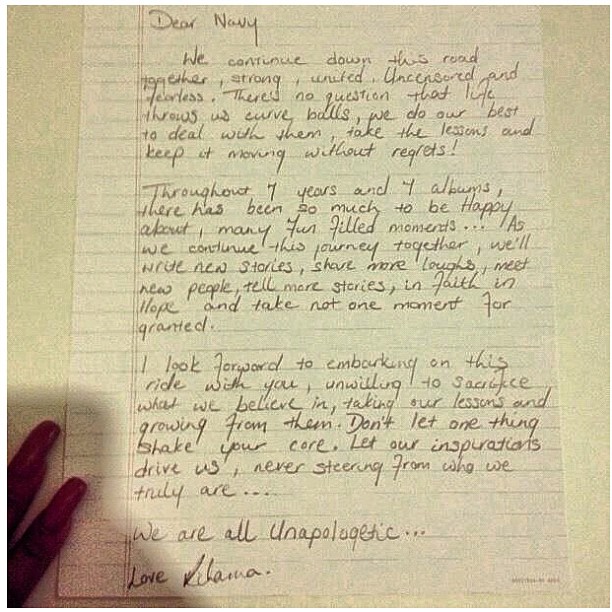 Dear Navy
We continue down this road
together, strong, united. Uncensored and
fearless. There's no question that life
throws us curve balls, we do our best
to deal with them, take the lessons and
keep it moving without regrets!
Throughout 7 years and 7 albums,
there has been so much to be Happy
about, many fun filled moments... As
we continue this journey together, we'll
write new stories, share more laughs, meet
new people, tell more stories, in faith in
Hope and take not one moment for
granted.
I look forward to embarking on this
ride with you, unwilling to sacrifice
what we believe in, taking our lessons and
growing from them. Don't let one thing
shake your core. Let our inspirations
drive us, never steering from who we
truly are....
We are all Unapologetic...
Love Rihanna.